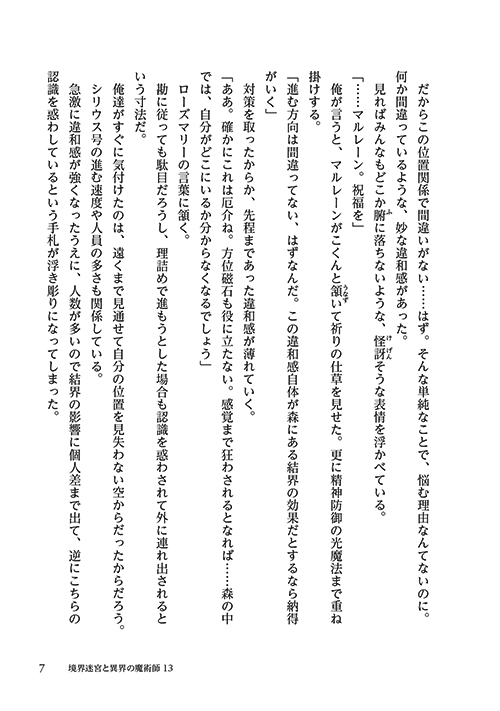 だからこの位置関係で間違いがない……はず。そんな単純なことで、悩む理由なんてないのに。
何か間違っているような、妙な違和感があった。
見ればみんなもどこか腑に落ちないような、怪訝そうな表情を浮かべている。
「……マルレーン。祝福を」
俺が言うと、マルレーンがこくんと頷いて祈りの仕草を見せた。更に精神防御の光魔法まで重ね
掛けする。
「進む方向は間違ってない、はずなんだ。この違和感自体が森にある結界の効果だとするなら納得
がいく」
対策を取ったからか、先程まであった違和感が薄れていく。
「ああ。確かにこれは厄介ね。方位磁石も役に立たない。感覚まで狂わされるとなれば……森の中
では、自分がどこにいるか分からなくなるでしょう」
ローズマリーの言葉に頷く。
勘に従っても駄目だろうし、理詰めで進もうとした場合も認識を惑わされて外に連れ出されると
いう寸法だ。
俺達がすぐに気付けたのは、遠くまで見通せて自分の位置を見失わない空からだったからだろう。
シリウス号の進む速度や人員の多さも関係している。
急激に違和感が強くなったうえに、人数が多いので結界の影響に個人差まで出て、逆にこちらの
認識を惑わしているという手札が浮き彫りになってしまった。
7 境界迷宮と異界の魔術師 13